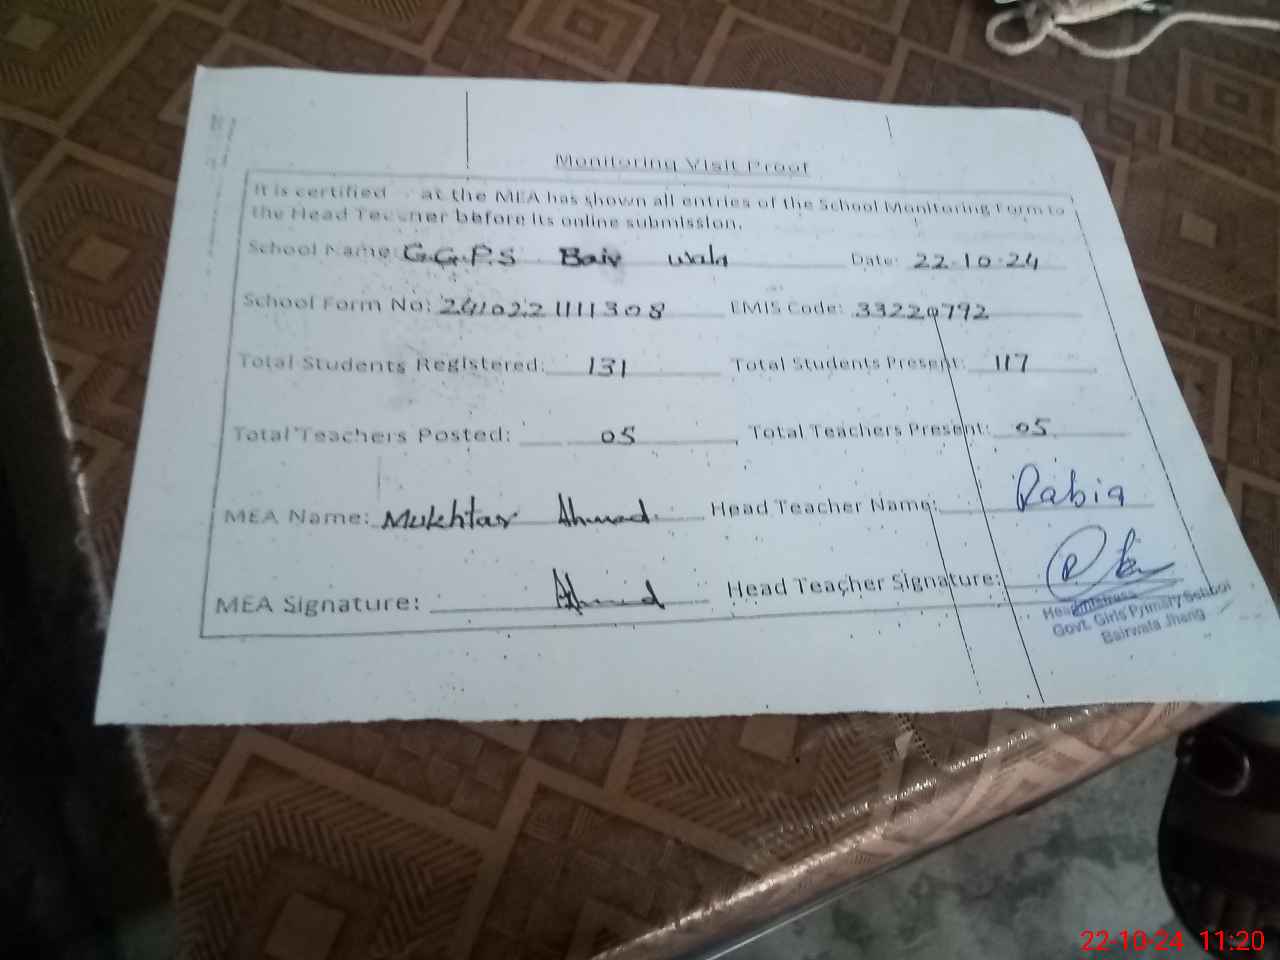 Monitoring Visit Proof
It is certified at the MEA has shown all entries of the School Monitoring Form to
the Head Teacher before its online submission.
School Name: G.G.P.S Bair wala Date: 22-10-24
School Form No: 241022111308 EMIS Code: 33220792
Total Students Registered: 131 Total Students Present: 117
Total Teachers Posted: 05, Total Teachers Present: 05
MEA Name: Mukhtar Ahmad. Head Teacher Name: Rabia
MEA Signature: Ahmad Head Teacher Signature:
Headmistress
Govt. Girls Primary School
Bairwala Jhang
22-10-24 11:20